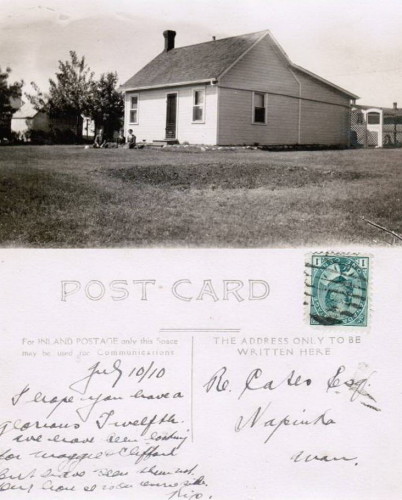 POST-CARD
1 1
For INLAND POSTAGE only this Space
may be used for Communications.
THE ADDRESS ONLY TO BE
WRITTEN HERE
July 10/10
I hope you have a
glorious Twelfth.
we have been looking
for Maggie & Clifford
but have seen them not.
R. Cates Esq.
Napinka
Man.